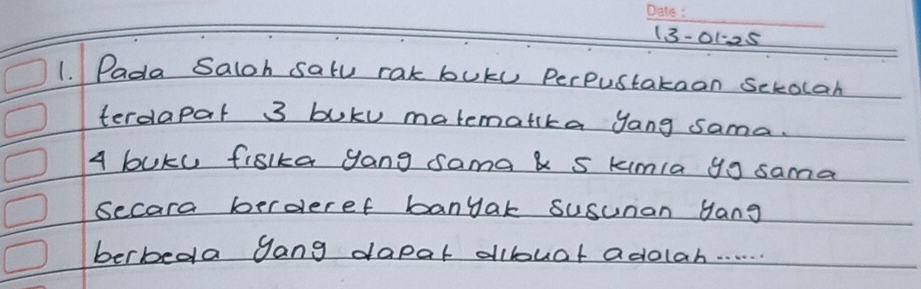 Date :
13-01-25
1. Pada Salah satu rak buku Perpustakaan Sekolah
terdapat 3 buku matematika yang sama.
4 buku fisika yang sama & 5 kimia yg sama
secara berderet banyak susunan yang
berbeda yang dapat dibuat adalah......